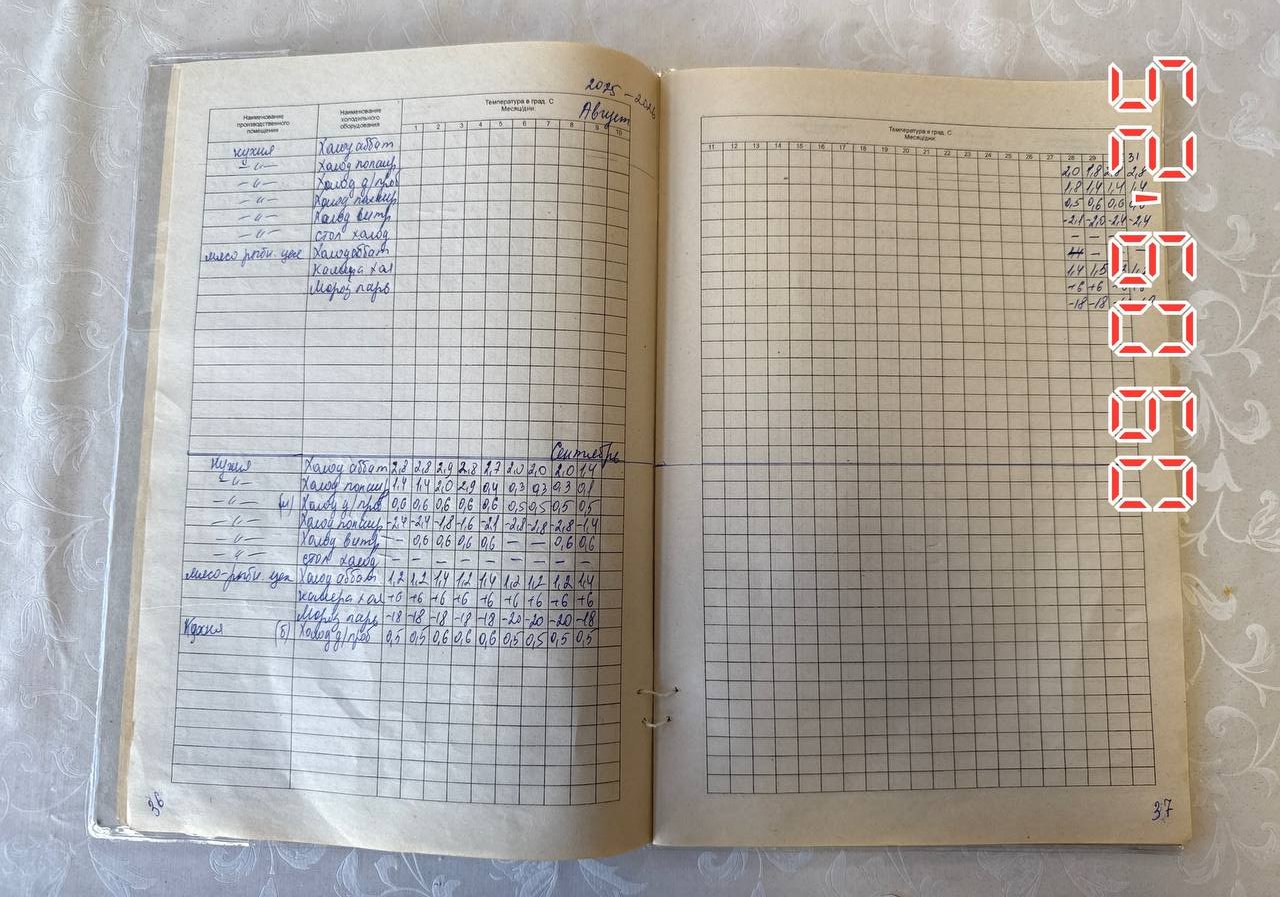 2025 – 2026
Август
Наименование производственного помещения
Наименование холодильного оборудования
Температура в град. С
Месяц/дни:
1 2 3 4 5 6 7 8 9 10
кухня Холод аббат
–"– Холод попшир
–"– Холод д/проб
–"– Холод попшир
–"– Холод витр
–"– стол холод
мясо рыбн. цех Холод аббат
Камера хол
Мороз ларь
Сентябрь
Кухня Холод аббат 2,8 2,8 2,9 2,8 2,7 2,0 2,0 2,0 1,4
–"– Холод попшир 1,4 1,4 2,0 2,9 0,4 0,3 0,3 0,3 0,1
–"– (м) Холод д/проб 0,6 0,6 0,6 0,6 0,6 0,5 0,5 0,5 0,5
–"– Холод попшир -2,4 -2,4 -1,8 -1,6 -2,1 -2,8 -2,8 -2,8 -1,4
–"– Холод витр – 0,6 0,6 0,6 0,6 – – 0,6 0,6
–"– стол холод – – – – – – – – –
мясо-рыбн. цех Холод аббат 1,2 1,2 1,4 1,2 1,4 1,2 1,2 1,2 1,4
Камера хол +6 +6 +6 +6 +6 +6 +6 +6 +6
Мороз ларь -18 -18 -18 -18 -18 -20 -20 -20 -18
Кухня (б) Холод д/проб 0,5 0,5 0,6 0,6 0,6 0,5 0,5 0,5 0,5
36
Температура в град. С
Месяц/дни:
11 12 13 14 15 16 17 18 19 20 21 22 23 24 25 26 27 28 29 31
2,0 1,8 2,8
1,8 1,4 1,4 1,4
0,5 0,6 0,6
-2,1 -2,0 -2,4 -2,4
– – –
– –
1,4 1,5
+6 +6
-18 -18
37
03.09.25